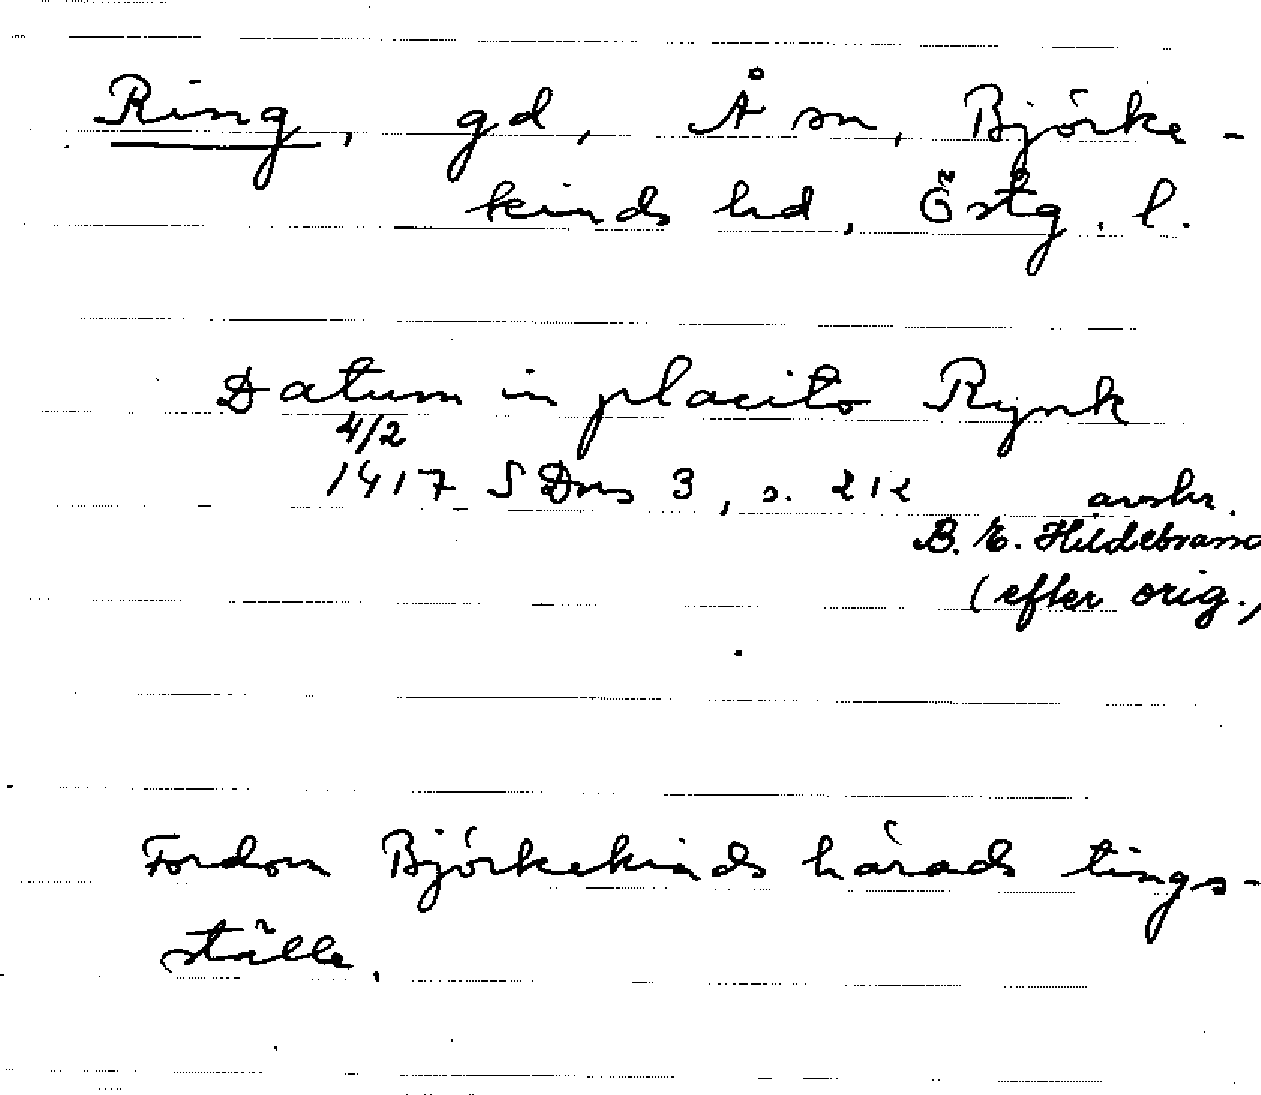 Ring, gd, Å sn, Björke-
kinds hd, Östg. l.
Datum in placito Rynk
4/2
1417 SDns 3, s. 212 avskr.
B. E. Hildebrand
(efter orig.,
Fordom Björkekinds härads tings-
ställe.